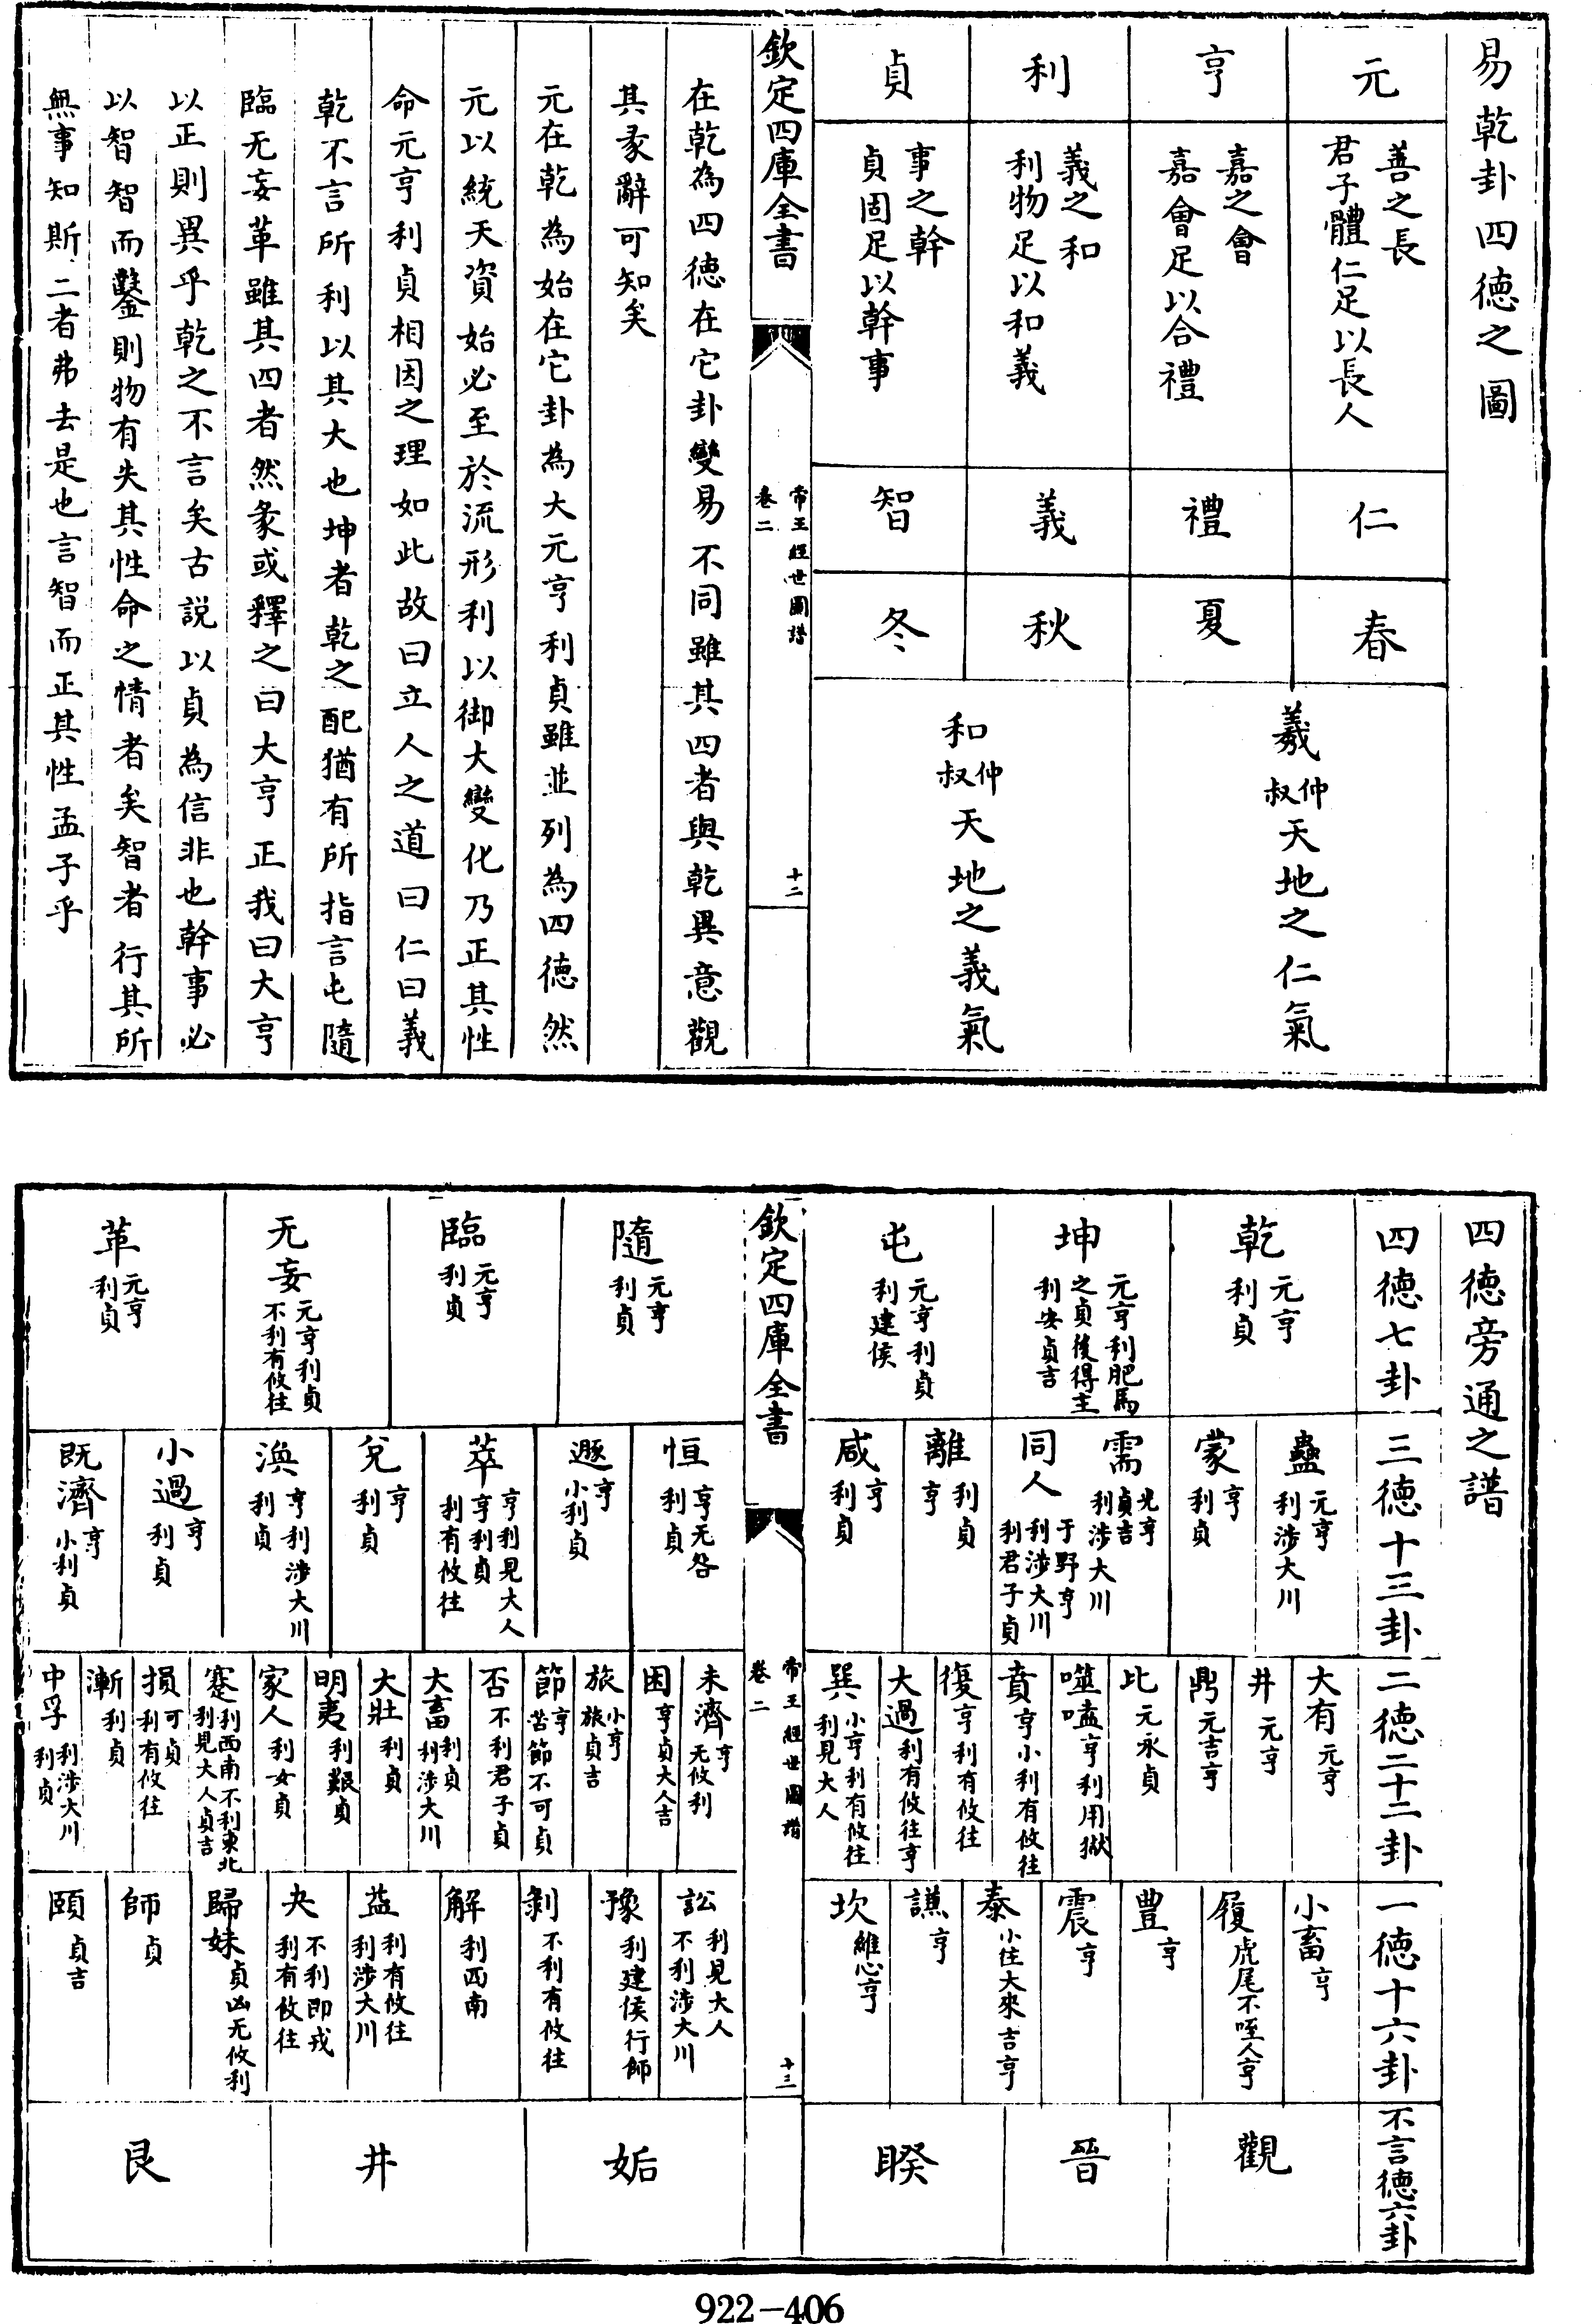 易乾卦四德之圖
元
善之長
君子體仁足以長人
仁
春
亨
嘉之會
嘉會足以合禮
禮
夏
羲仲叔天地之仁氣
利
義之和
利物足以和義
義
秋
貞
事之幹
貞固足以幹事
智
冬
和仲叔天地之義氣
欽定四庫全書
帝王經世圖譜
卷二
十二
在乾為四德在它卦變易不同雖其四者與乾異意觀
其彖辭可知矣
元在乾為始在它卦為大元亨利貞雖並列為四德然
元以統天資始必至於流形利以御大變化乃正其性
命元亨利貞相因之理如此故曰立人之道曰仁曰義
乾不言所利以其大也坤者乾之配猶有所指言屯隨
臨无妄革雖其四者然彖或釋之曰大亨正我曰大亨
以正則異乎乾之不言矣古説以貞為信非也幹事必
以智智而鑿則物有失其性命之情者矣智者行其所
無事知斯二者弗去是也言智而正其性孟子乎
四德旁通之譜
四德七卦
乾 元亨利貞
坤 元亨利肥馬之貞後得主利安貞吉
屯 元亨利貞利建侯
隨 元亨利貞
臨 元亨利貞
无妄 元亨利貞不利有攸往
革 元亨利貞
三德十三卦
蠱 元亨利涉大川
蒙 亨利貞
需 光亨貞吉利涉大川
同人 于野亨利涉大川利君子貞
離 利貞亨
咸 亨利貞
恒 亨无咎利貞
遯 亨小利貞
萃 亨利見大人亨利貞利有攸往
兌 亨利貞
渙 亨利涉大川利貞
小過 亨利貞
既濟 亨小利貞
二德二十二卦
大有 元亨
井 元亨
鼎 元吉亨
比 元永貞
噬嗑 亨利用獄
賁 亨小利有攸往
復 亨利有攸往
大過 利有攸往亨
巽 小亨利有攸往利見大人
未濟 亨无攸利
困 亨貞大人吉
旅 小亨旅貞吉
節 亨苦節不可貞
否 不利君子貞
大畜 利貞利涉大川
大壯 利貞
明夷 利艱貞
家人 利女貞
蹇 利西南不利東北利見大人貞吉
損 可貞利有攸往
漸 利貞
中孚 利涉大川利貞
一德十六卦
小畜 亨
履 虎尾不咥人亨
豐 亨
震 亨
泰 小往大來吉亨
謙 亨
坎 維心亨
訟 利見大人不利涉大川
豫 利建侯行師
剝 不利有攸往
解 利西南
益 利有攸往利涉大川
夬 不利即戎利有攸往
歸妹 貞凶无攸利
師 貞
頤 貞吉
不言德六卦
觀
晉
睽
姤
井
艮
欽定四庫全書
帝王經世圖譜
卷二
十三
922-406